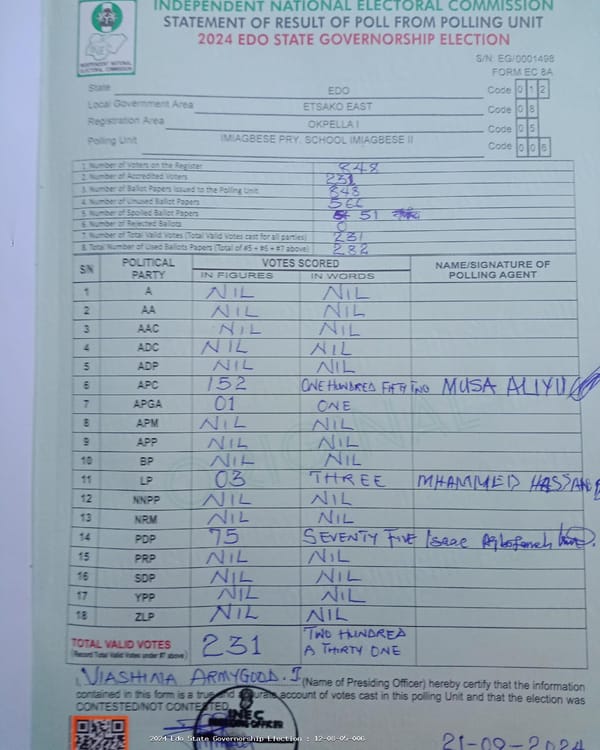 INDEPENDENT NATIONAL ELECTORAL COMMISSION
STATEMENT OF RESULT OF POLL FROM POLLING UNIT
2024 EDO STATE GOVERNORSHIP ELECTION
INEC
INDEPENDENT NATIONAL ELECTORAL COMMISSION
S/N: EG/0001498
FORM EC 8A
State EDO Code 0 1 2
Local Government Area ETSAKO EAST Code 0 8
Registration Area OKPELLA I Code 0 5
Polling Unit IMIAGBESE PRY. SCHOOL IMIAGBESE II Code 0 0 6
1. Number of Voters on the Register 848
2. Number of Accredited Voters 231
3. Number of Ballot Papers Issued to the Polling Unit 848
4. Number of Unused Ballot Papers 566
5. Number of Spoiled Ballot Papers 51
6. Number of Rejected Ballots 0
7. Number of Total Valid Votes (Total Valid Votes cast for all parties) 231
8. Total Number of Used Ballots Papers (Total of #5 + #6 + #7 above) 282
S/N POLITICAL PARTY VOTES SCORED NAME/SIGNATURE OF POLLING AGENT
IN FIGURES IN WORDS
1 A NIL NIL
2 AA NIL NIL
3 AAC NIL NIL
4 ADC NIL NIL
5 ADP NIL NIL
6 APC 152 ONE HUNDRED FIFTY TWO MUSA ALIYU
7 APGA 01 ONE
8 APM NIL NIL
9 APP NIL NIL
10 BP NIL NIL
11 LP 03 THREE MHAMMED HASSAN
12 NNPP NIL NIL
13 NRM NIL NIL
14 PDP 75 SEVENTY FIVE Isaac
15 PRP NIL NIL
16 SDP NIL NIL
17 YPP NIL NIL
18 ZLP NIL NIL
TOTAL VALID VOTES 231 TWO HUNDRED
(Record Total Valid Votes under #7 above) A THIRTY ONE
I, VIASHIMA ARMYGOOD. J (Name of Presiding Officer) hereby certify that the information
contained in this form is a true and accurate account of votes cast in this polling Unit and that the election was
CONTESTED/NOT CONTESTED
INEC
2024 Edo State Governorship Election : 12-08-05-006
21-09-2024